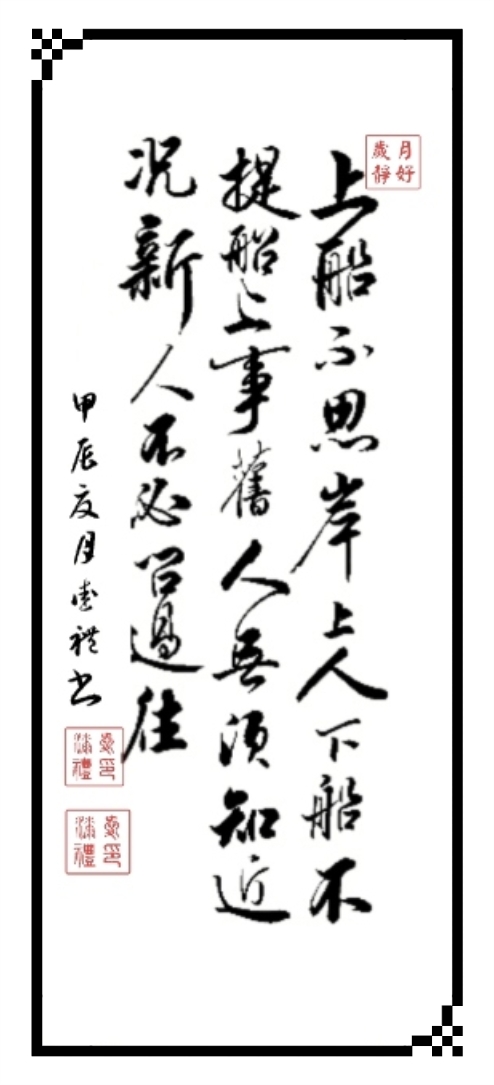 月好
歲靜
上船不思岸上人下船不
提船上事舊人無須知近
况新人不必问過往
甲辰夏月禮书